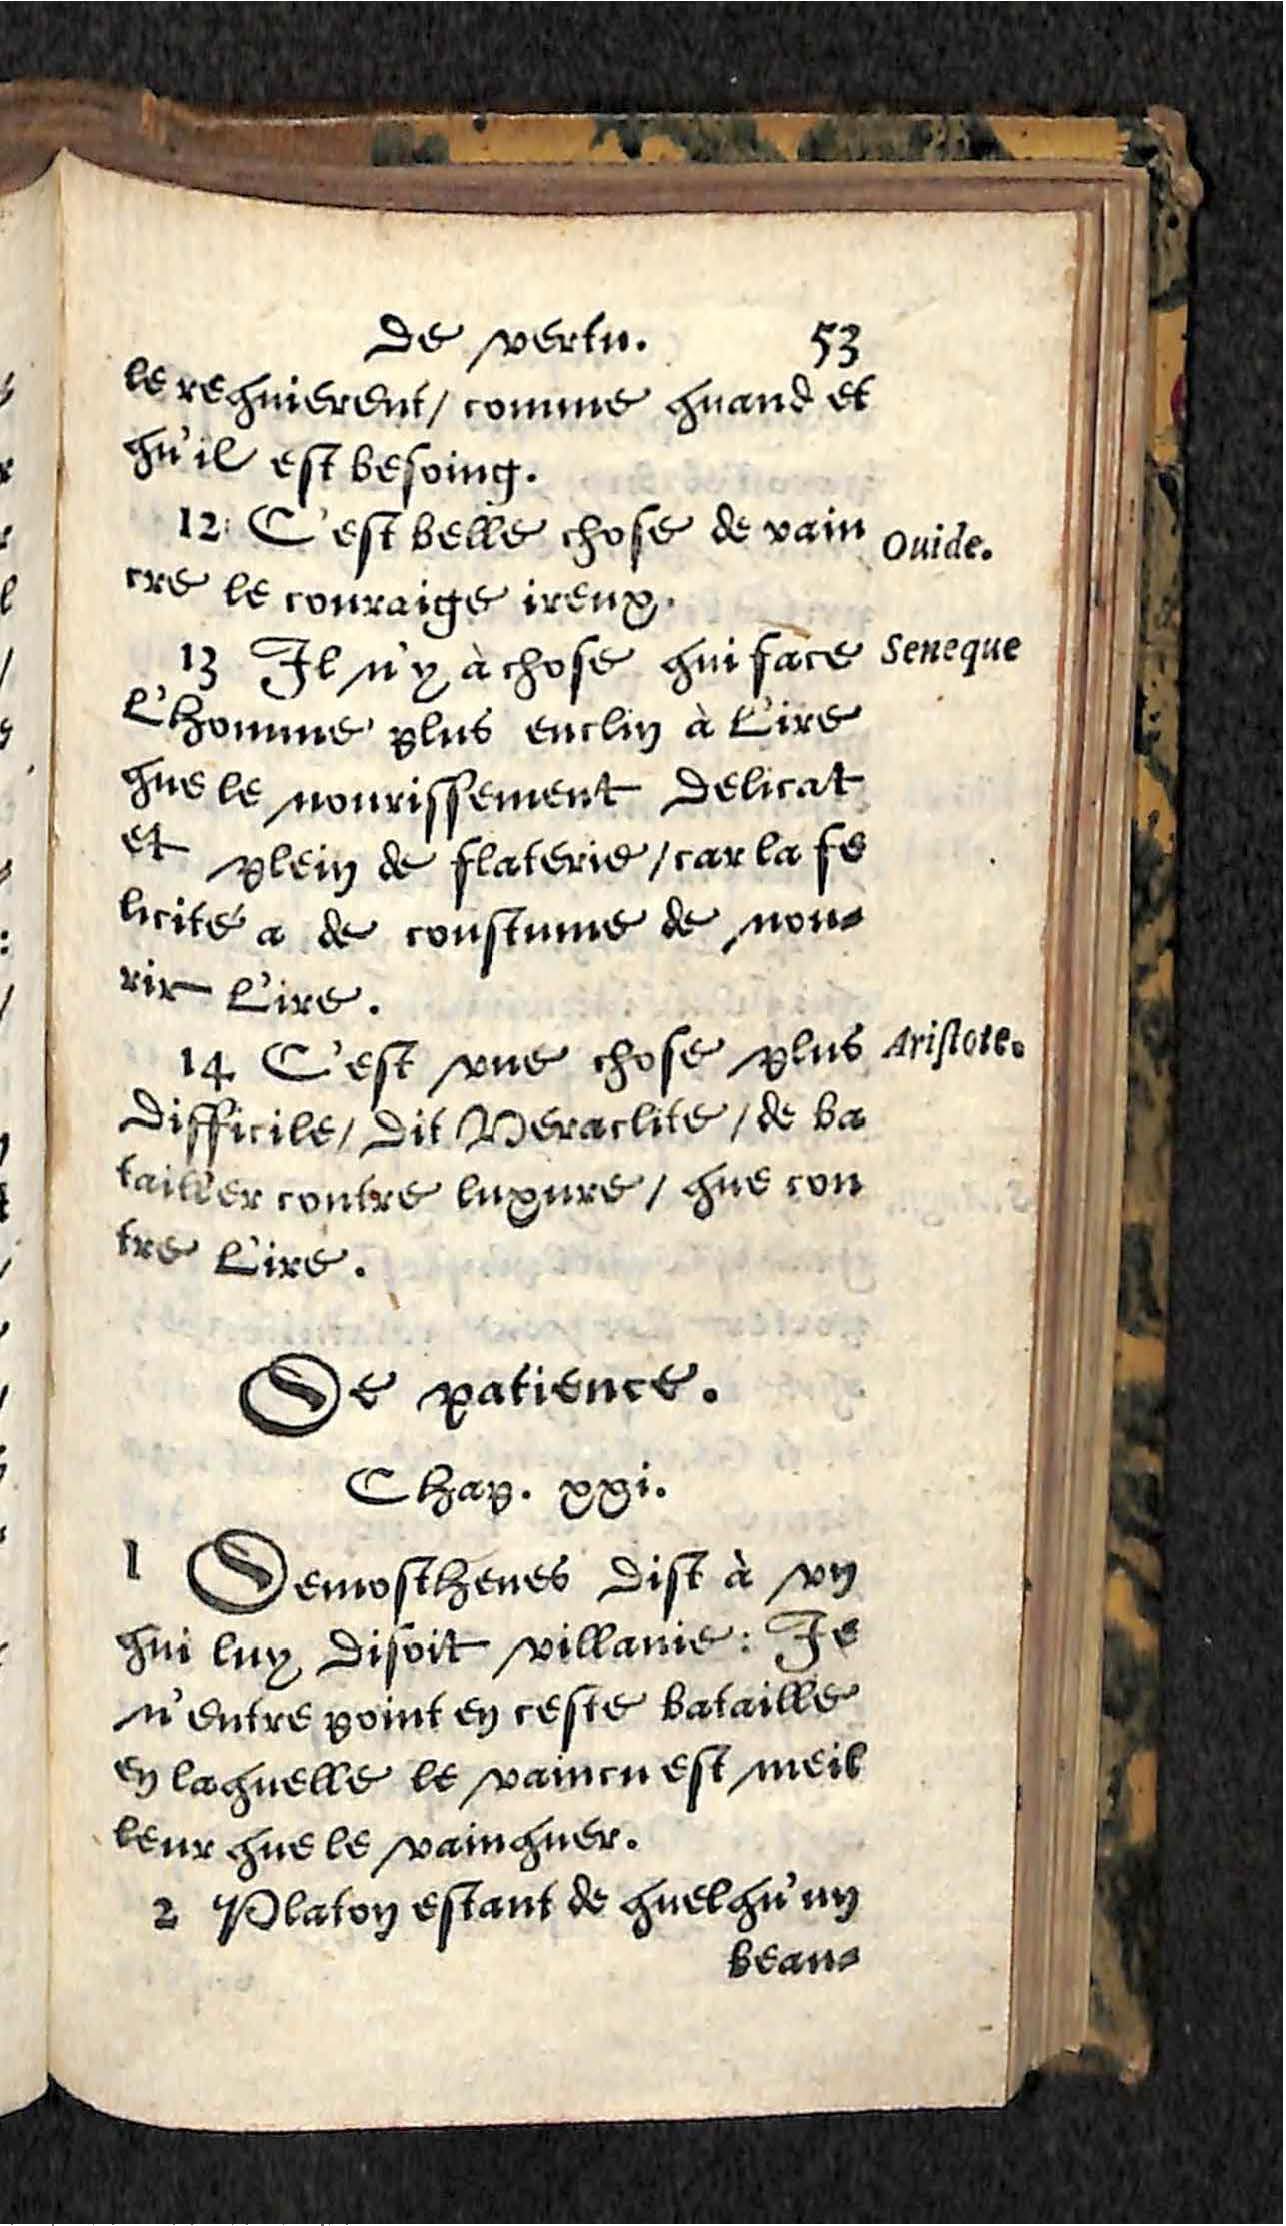 De vertu. 53
le requierent/ comme quand et
qu'il est besoing.
12 C'est belle chose de vain
Ouide.
cre le couraige ireux.
13 Il n'y à chose qui face
Seneque
l'homme plus enclin à l'ire
que le nourissement delicat
et plein de flaterie/ car la fe
licité a de coustume de nou-
rir l'ire.
14 C'est vne chose plus
Aristote.
difficile/ dit Heraclite/ de ba
tailler contre luxure/ que con
tre l'ire.
De patience.
Chap. xxi.
1 Demosthenes dist à vn
qui luy disoit villanie: Je
n'entre point en ceste bataille
en laquelle le vaincu est meil
leur que le vainquer.
2 Platon estant de quelqu'un
beau-